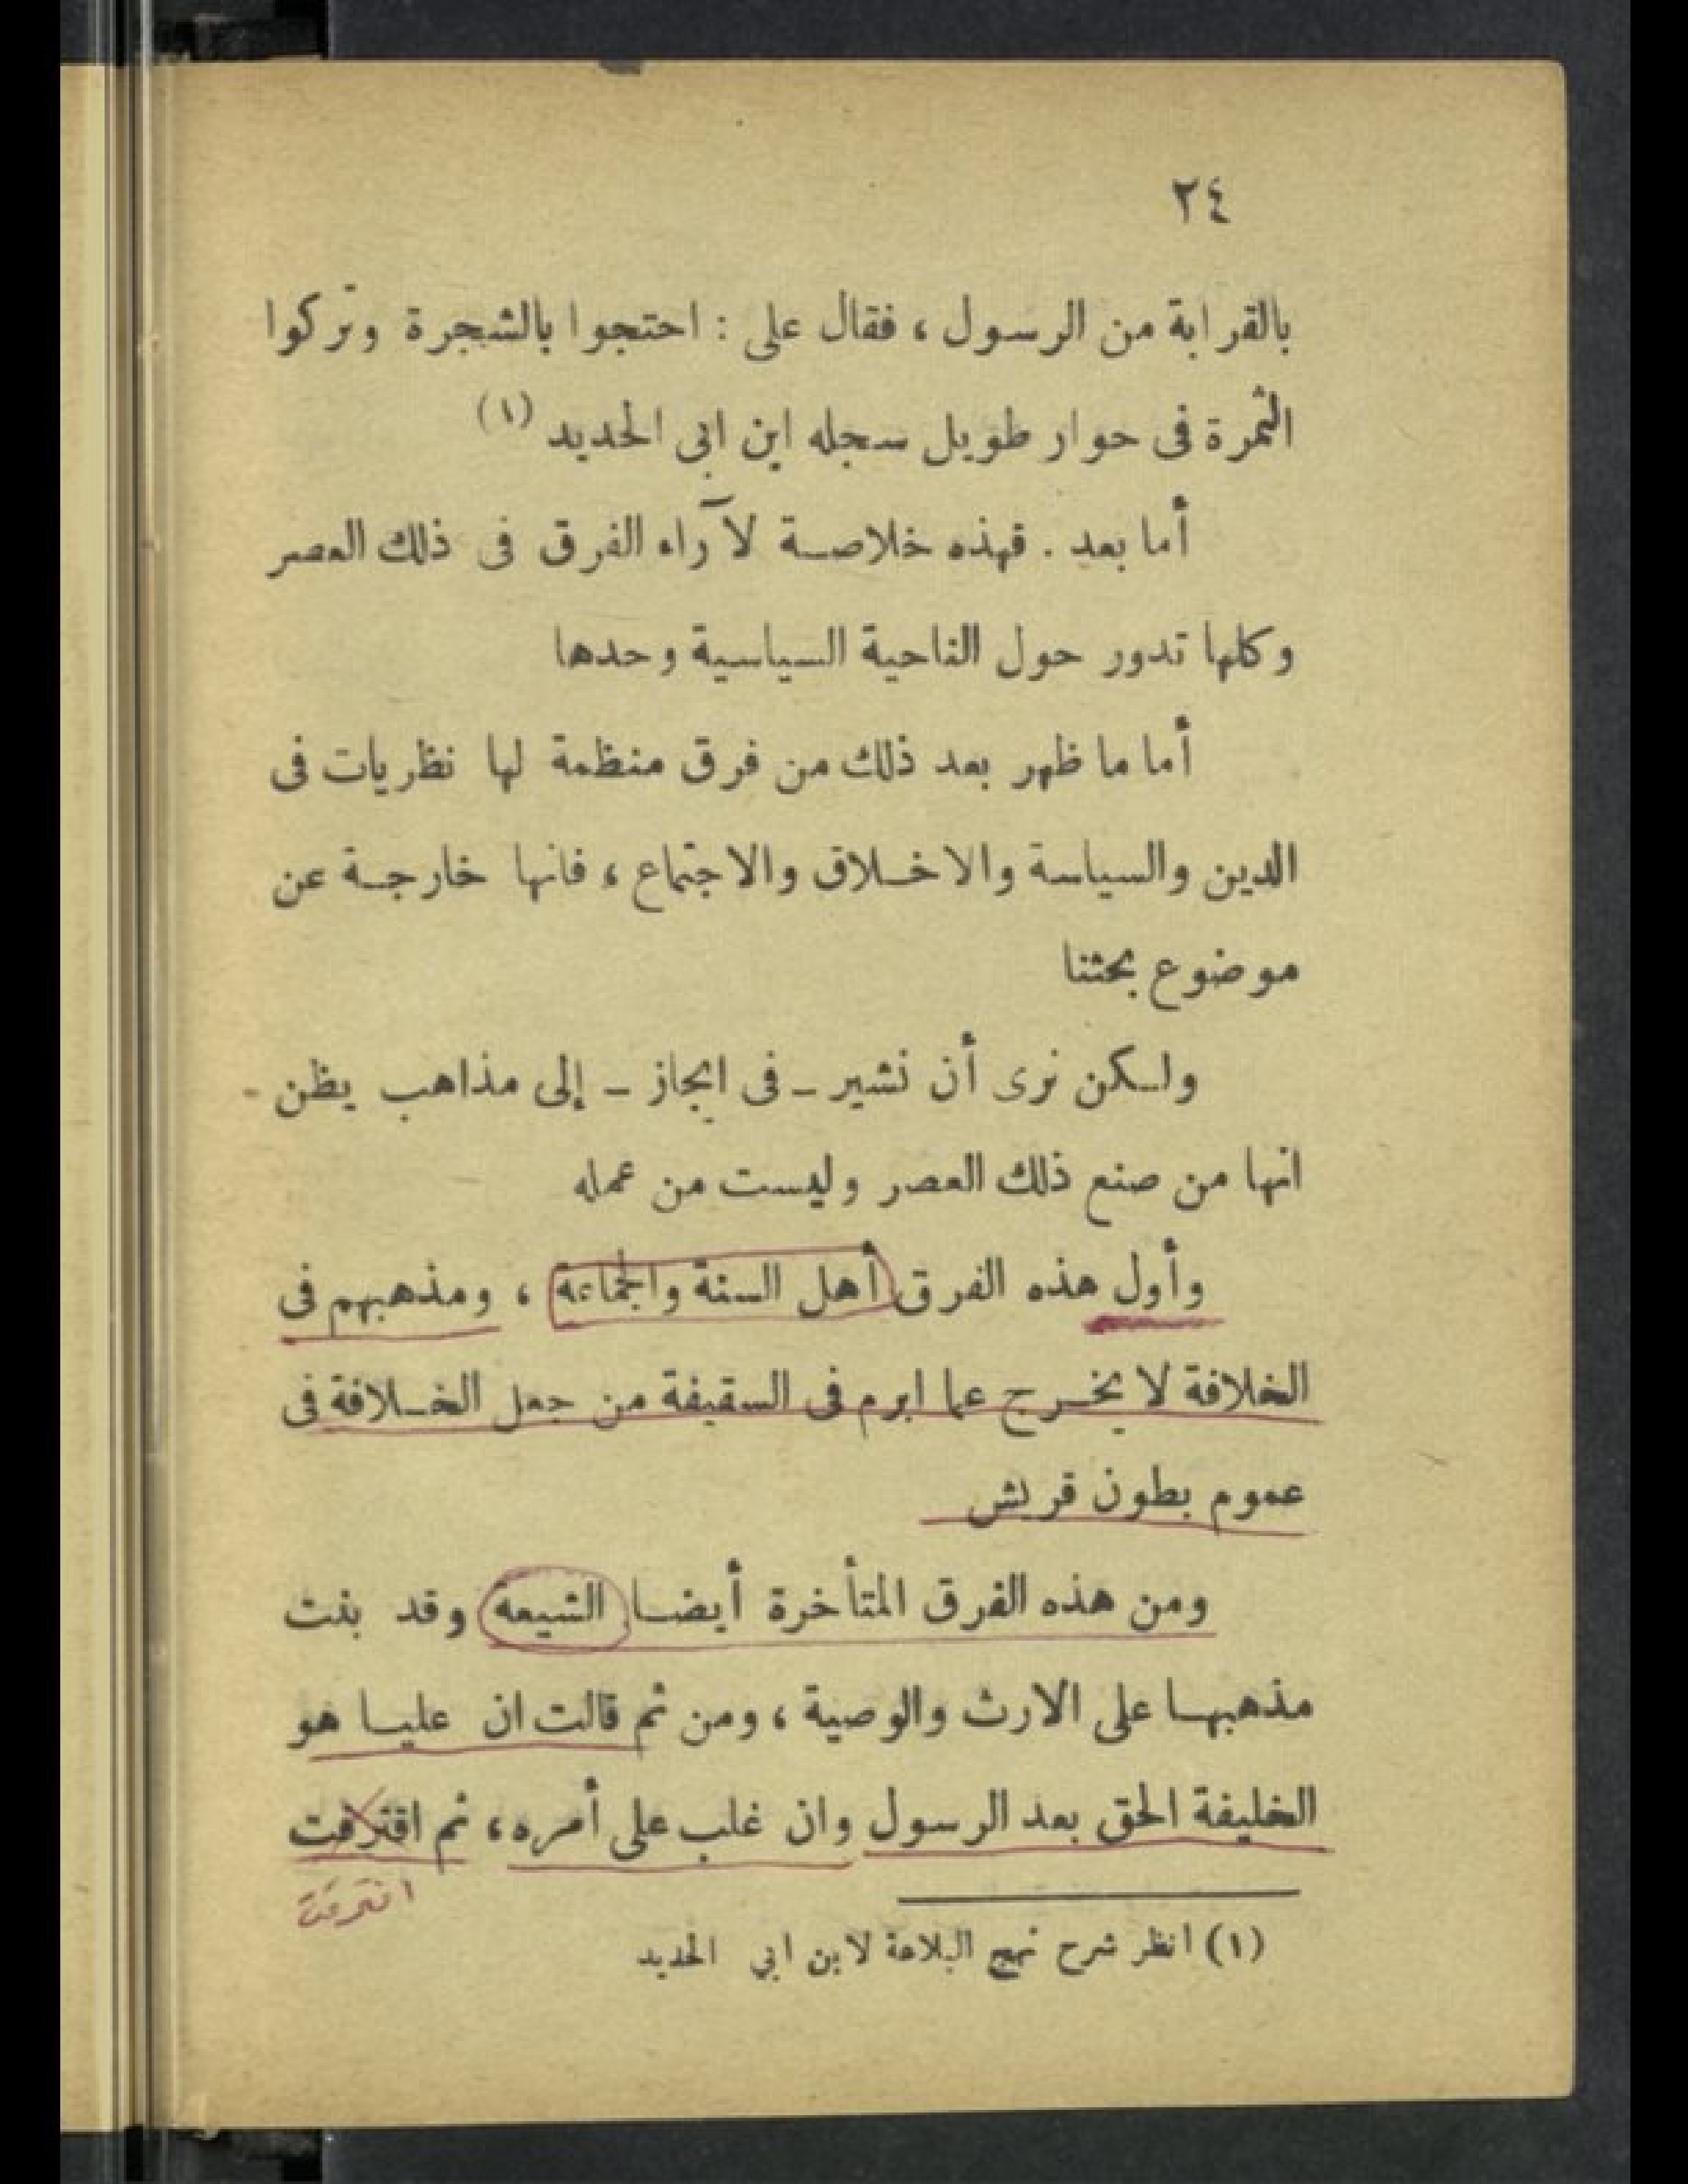 ٢٤
بالقرابة من الرسول ، فقال على : احتجوا بالشجرة وتركوا
الثمرة فى حوار طويل سجله ابن ابى الحديد (١)
أما بعد . فهذه خلاصة لآراء الفرق فى ذلك العصر
وكلها تدور حول الناحية السياسية وحدها
أما ما ظهر بعد ذلك من فرق منظمة لها نظريات فى
الدين والسياسة والاخلاق والاجتماع ، فانها خارجة عن
موضوع بحثنا
ولكن نرى أن نشير ـ فى ايجاز ـ إلى مذاهب يظن -
انها من صنع ذلك العصر وليست من عمله
وأول هذه الفرق أهل السنة والجماعة ، ومذهبهم فى
الخلافة لا يخرج عما ابرم فى السقيفة من جعل الخلافة فى
عموم بطون قريش
ومن هذه الفرق المتأخرة أيضا الشيعه وقد بنت
مذهبها على الارث والوصية ، ومن ثم قالت ان عليا هو
الخليفة الحق بعد الرسول وان غلب على أمره ، ثم اقترفت
افترقت
(١) انظر شرح نهج البلاغة لابن ابي الحديد